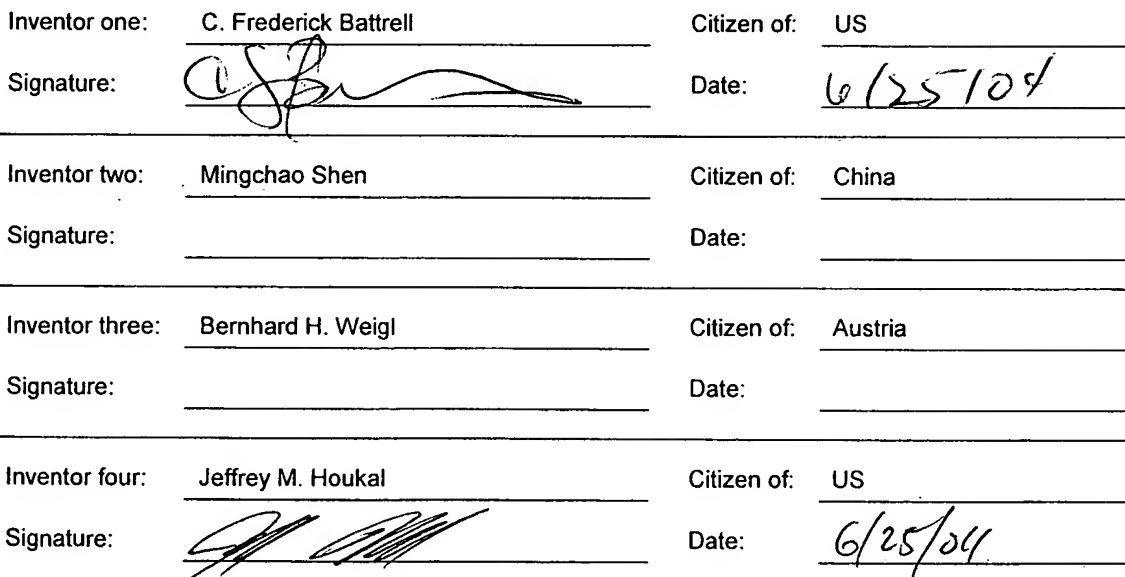 Inventor one: C. Frederick Battrell Citizen of: US
Signature: Date: 6/25/04
Inventor two: Mingchao Shen Citizen of: China
Signature: Date:
Inventor three: Bernhard H. Weigl Citizen of: Austria
Signature: Date:
Inventor four: Jeffrey M. Houkal Citizen of: US
Signature: Date: 6/25/04